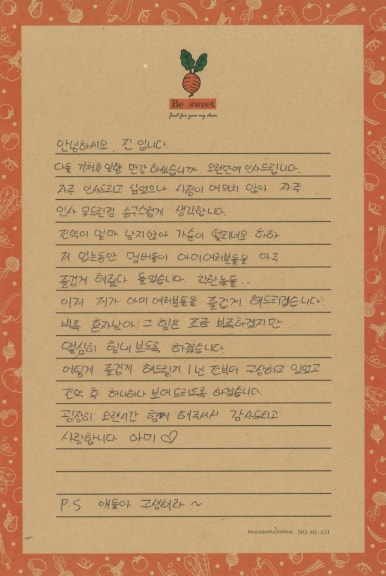 Be sweet
Just for you my dear
안녕하세요. 진 입니다
다들 기체후일향 만강 하셨습니까 오랜만에 인사드립니다.
자주 인사드리고 싶었으나 사정이 여의치 않아 자주
인사 못드린점 송구스럽게 생각합니다.
전역이 얼마 남지않아 가슴이 떨리네요 하하
저 없는동안 멤버들이 아미여러분들을 아주
즐겁게 해줬다 들었습니다. 착한놈들..
이제 제가 아미여러분들을 즐겁게 해드리겠습니다.
비록 혼자남아 그 힘은 조금 부족하겠지만
열심히 힘내보도록 하겠습니다
어떻게 즐겁게 해드릴지 1년 전부터 구상하고 있었고
전역 후 하나하나 보여드리도록 하겠습니다
굉장히 오랜시간 함께 해주셔서 감사드리고
사랑합니다 아미 ♡
P.S 얘들아 고생해라 ~
NO. ML-A51